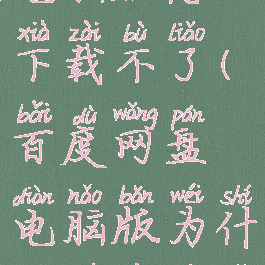 xià zài bù liǎo
下载不了(
bǎi dù wǎng pán
百度网盘
diàn nǎo bǎn wéi shí
电脑版为什